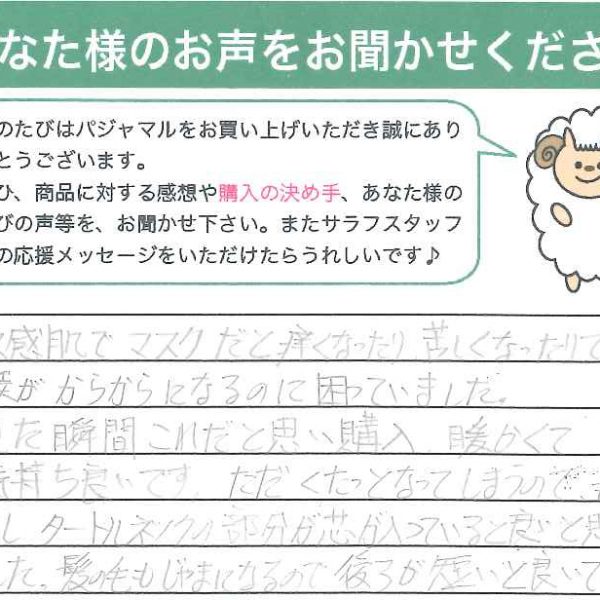 なた様のお声をお聞かせくださ
のたびはパジャマルをお買い上げいただき誠にあり
とうございます。
ひ、商品に対する感想や購入の決め手、あなた様の
びの声等を、お聞かせ下さい。またサラフスタッフ
の応援メッセージをいただけたらうれしいです♪
感肌でマスクだと痛くなったり苦しくなったりで
がからからになるのに困っていました。
た瞬間これだと思い購入 暖かくて
持ち良いです。ただくたっとなってしまうので、
しタートルネックの部分が芯が入っていると良いと思
た。髪の毛もじゃまになるので後ろが短いと良いで